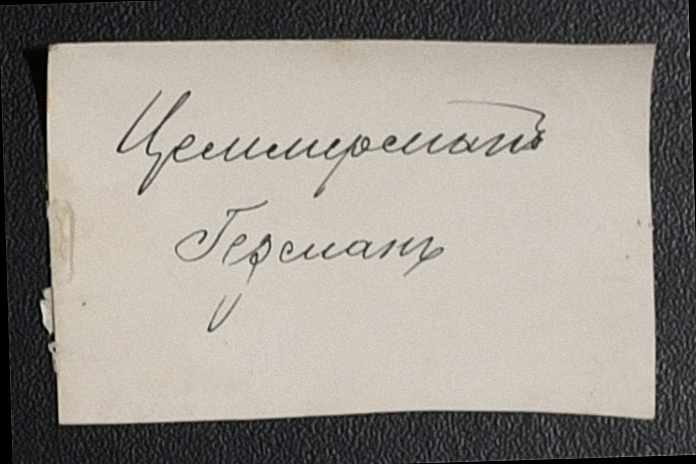 Цеммерманъ
Германъ